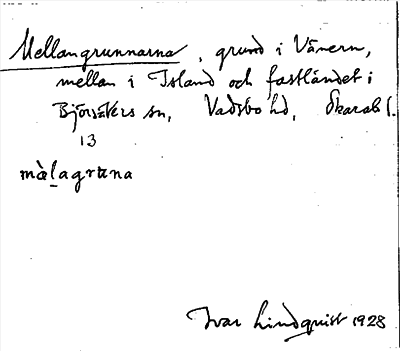 Mellangrunnarna, grund i Vänern,
mellan i Island och fastlandet i
Björsäters sn, Vadsbo hd, Skarab l.
13
màl̠agrɯna
Ivar Lindquist 1928